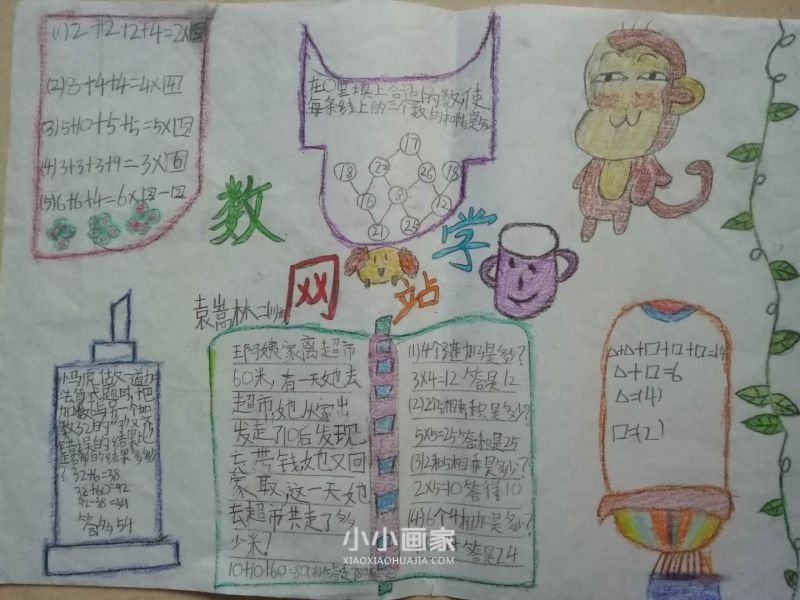 (1)2+2+2+4=2×5
(2)8+4+4=4×4
(3)5+0+5+5=5×
(4)3+3+3+9=3×6
(5)6+6+4=6×
在○里填上合适的数,使
每条线上的三个数的和
17
18
22
26
18
16
12
21
25
数
学
网
站
袁嵩林
王阿姨家离超市
60米,有一天她去
超市,她从家出
发走了10后发现
钱她又回
家取,这一天她
去超市共走了多
少米?
10+10+60=80
(1)4个3连加是多少?
3×4=12 答是12
(2)2个5相乘积是多少?
5×5=25 答积是25
(3)2和5相乘是多少?
2×5=10 答得10
(4)6个4相加是多少?
答是24
△+△+口+口+口=14
△+口=6
△=(4)
口=(2)
小马虎做一道加
法算式题时,把
加数6与另一个加
32+6=38
32+60=92
92-38=54
答多54
小小画家
XIAOXIAOHUAJIA.COM